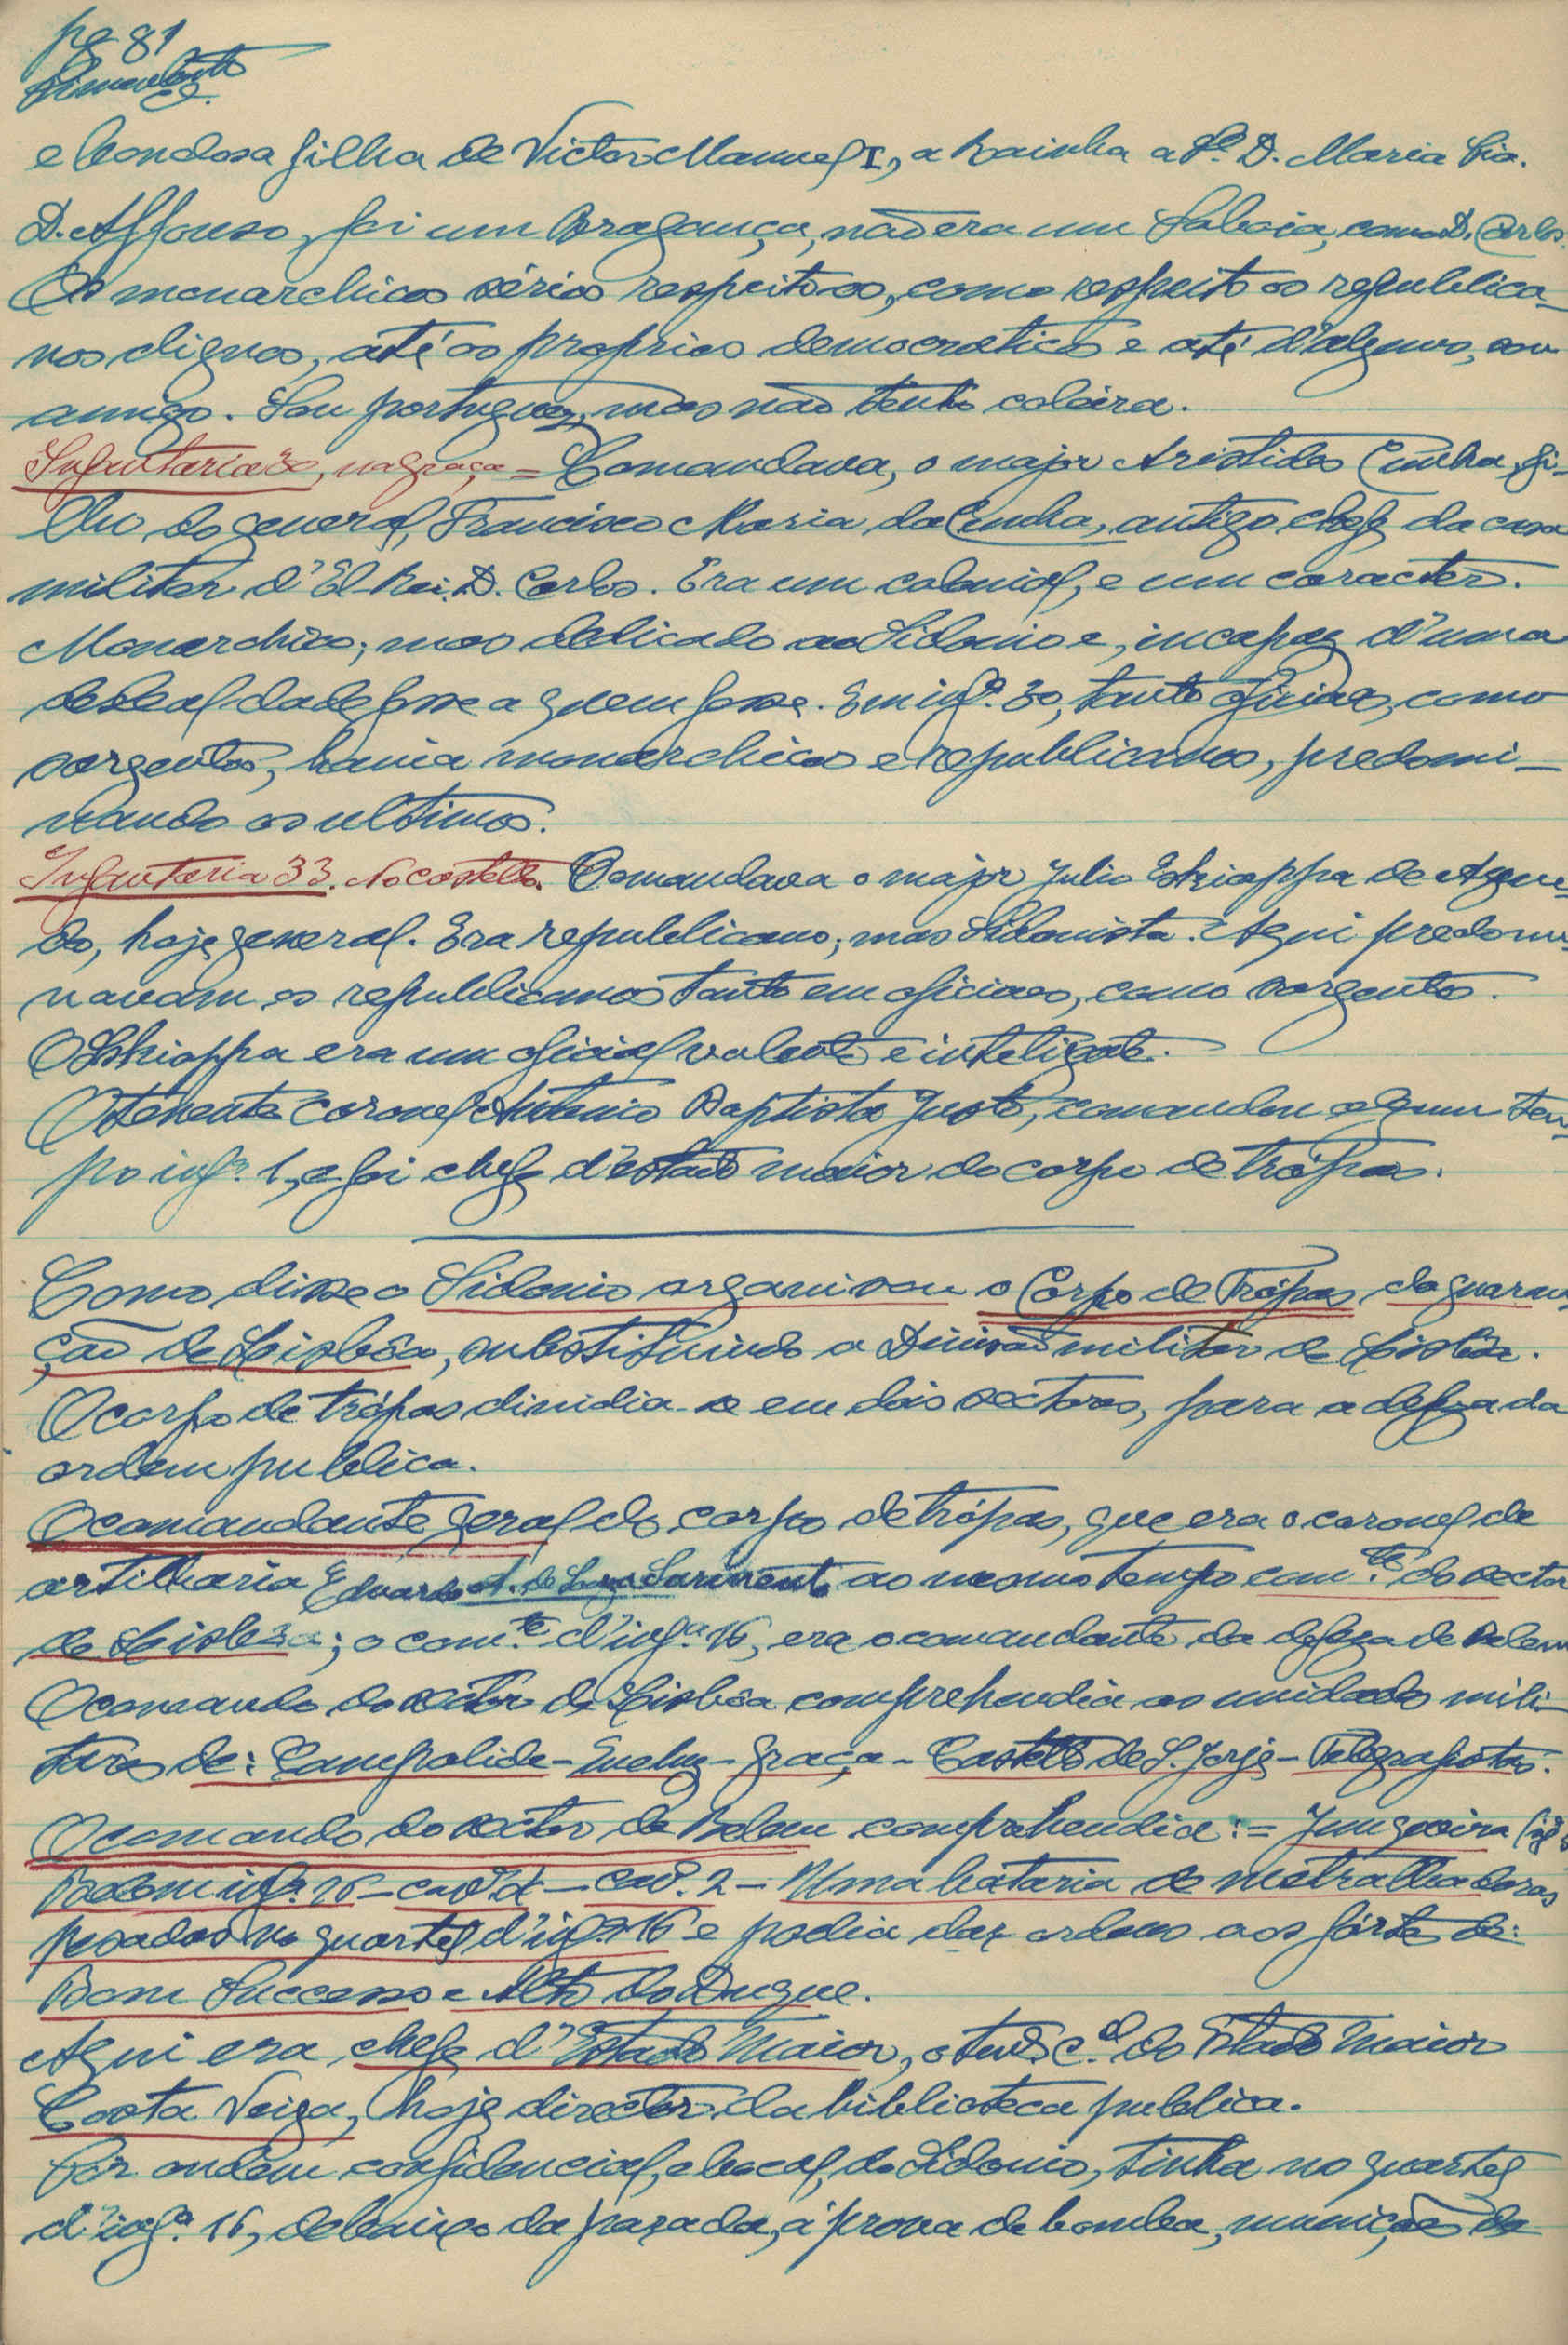 pg 81
e bondosa filha de Victor Manuel I, a Rainha a Sr.ª D. Maria Pia.
D. Affonso, foi um Bragança, não era um Saboia, como D. Carlos.
Os monarchicos sérios respeito-os, como respeito os republica-
nos dignos, até os proprios democraticos e até d'alguns, sou
amigo. Sou portuguez, mas não tenho coleira.
Infantaria 30, na graça = Comandava, o major Aristides Cunha, fi-
lho do general, Francisco Maria da Cunha, antigo chefe da casa
militar d'El-Rei. D. Carlos. Era um colonial, e um caracter.
Monarchico; mas dedicado ao Sidonio e, incapaz d'uma
deslealdade fosse a quem fosse. Em infª. 30, tanto oficiaes, como
sargentos, havia monarchicos e republicanos, predomi-
nando os ultimos.
Infantaria 33. No castello. Comandava o major Julio Eskiappa de Azeve-
do, hoje general. Era republicano; mas Sidonista. Aqui predomi-
navam os republicanos tanto em oficiaes, como sargentos.
O Skiappa era um oficial valente e inteligente.
O tenente coronel Antonio Baptista Justo, comandou algum tem-
po infª. 1, e foi chefe d'estado maior do corpo de trópas.
Como disse o Sidonio organisou o Corpo de Trópas da guarni-
ção de Lisbôa, substituindo a Divisão militar de Lisbôa.
O corpo de trópas dividia-se em dois sectores, para a defeza da
ordem publica.
O comandante geral do corpo de trópas, que era o coronel de
artilharia Eduardo A. de Souza Sarmento ao mesmo tempo com.te do sector
de Lisbôa; o com.te d'infª. 16, era o comandante da defeza de Belem
O comando do sector de Lisbôa comprehendia as unidades mili-
tares de: Campolide - Queluz - Graça - Castello de S. Jorge - Telegrafistas.
O comando do sector de Belem comprehendia: = Junqueira
Belem infª. 16 - cavª 4 - cav. 2 - Uma bataria de metralhadoras
pesadas no quartel d'infª 16 e podia dar ordens aos fórtes de:
Bom Successo e Alto do Duque.
Aqui era chefe d'Estado Maior, o tent. c.el do Estado Maior
Costa Veiga, hoje director da biblioteca publica.
Por ordem confidencial, e bocal, do Sidonio, tinha no quartel
d'infª. 16, debaixo da parada, á prova de bomba, munições de